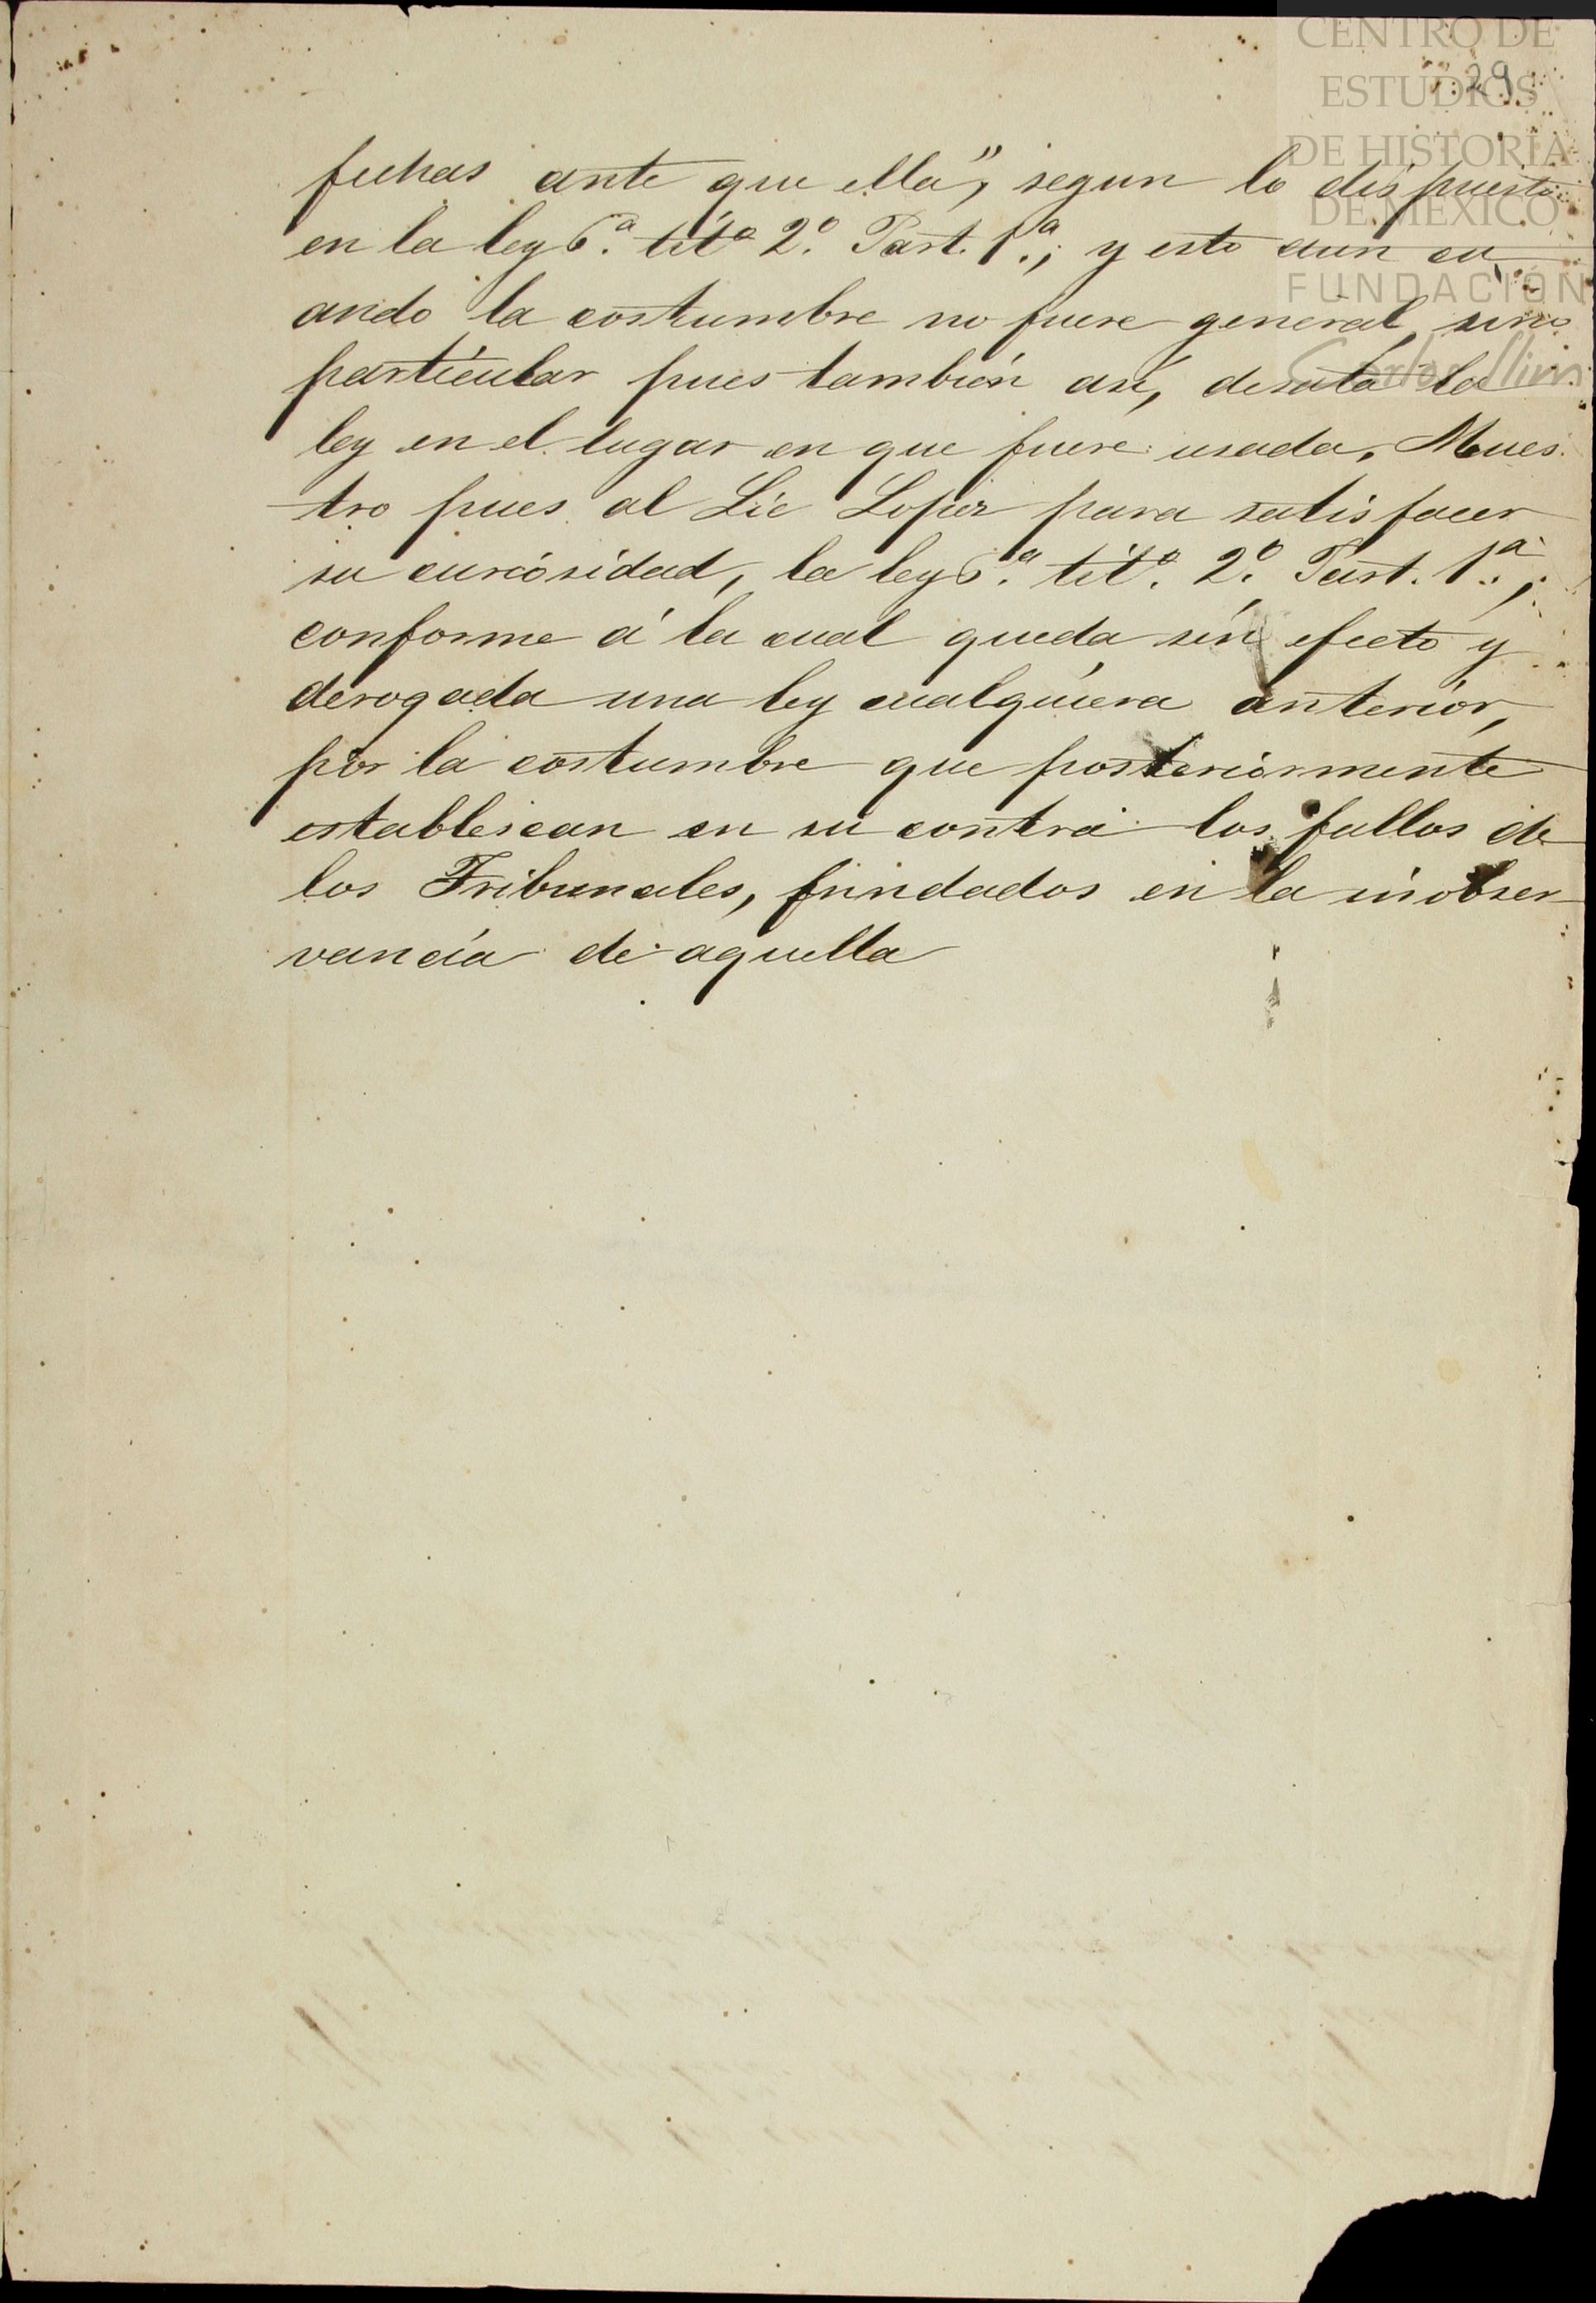 CENTRO DE
ESTUDIOS
DE HISTORIA
DE MEXICO
FUNDACIÓN
Carlos Slim
29
fechas ante que ella", segun lo dispuesto
en la ley 6.ª titº 2.º Part. 1.ª; y esto aun cu
ando la costumbre no fuere general, sino
particular pues también así, desata la
ley en el lugar en que fuere usada. Mues
tro pues al Lic Lopez para satisfacer
su curiosidad, la ley 6.ª titº. 2.º Part. 1.ª,
conforme á la cual queda sin efecto y
derogada una ley cualquiera anterior,
por la costumbre que posteriormente
establescan en su contra los fallos de
los Tribunales, fundados en la inobser
vancia de aquella